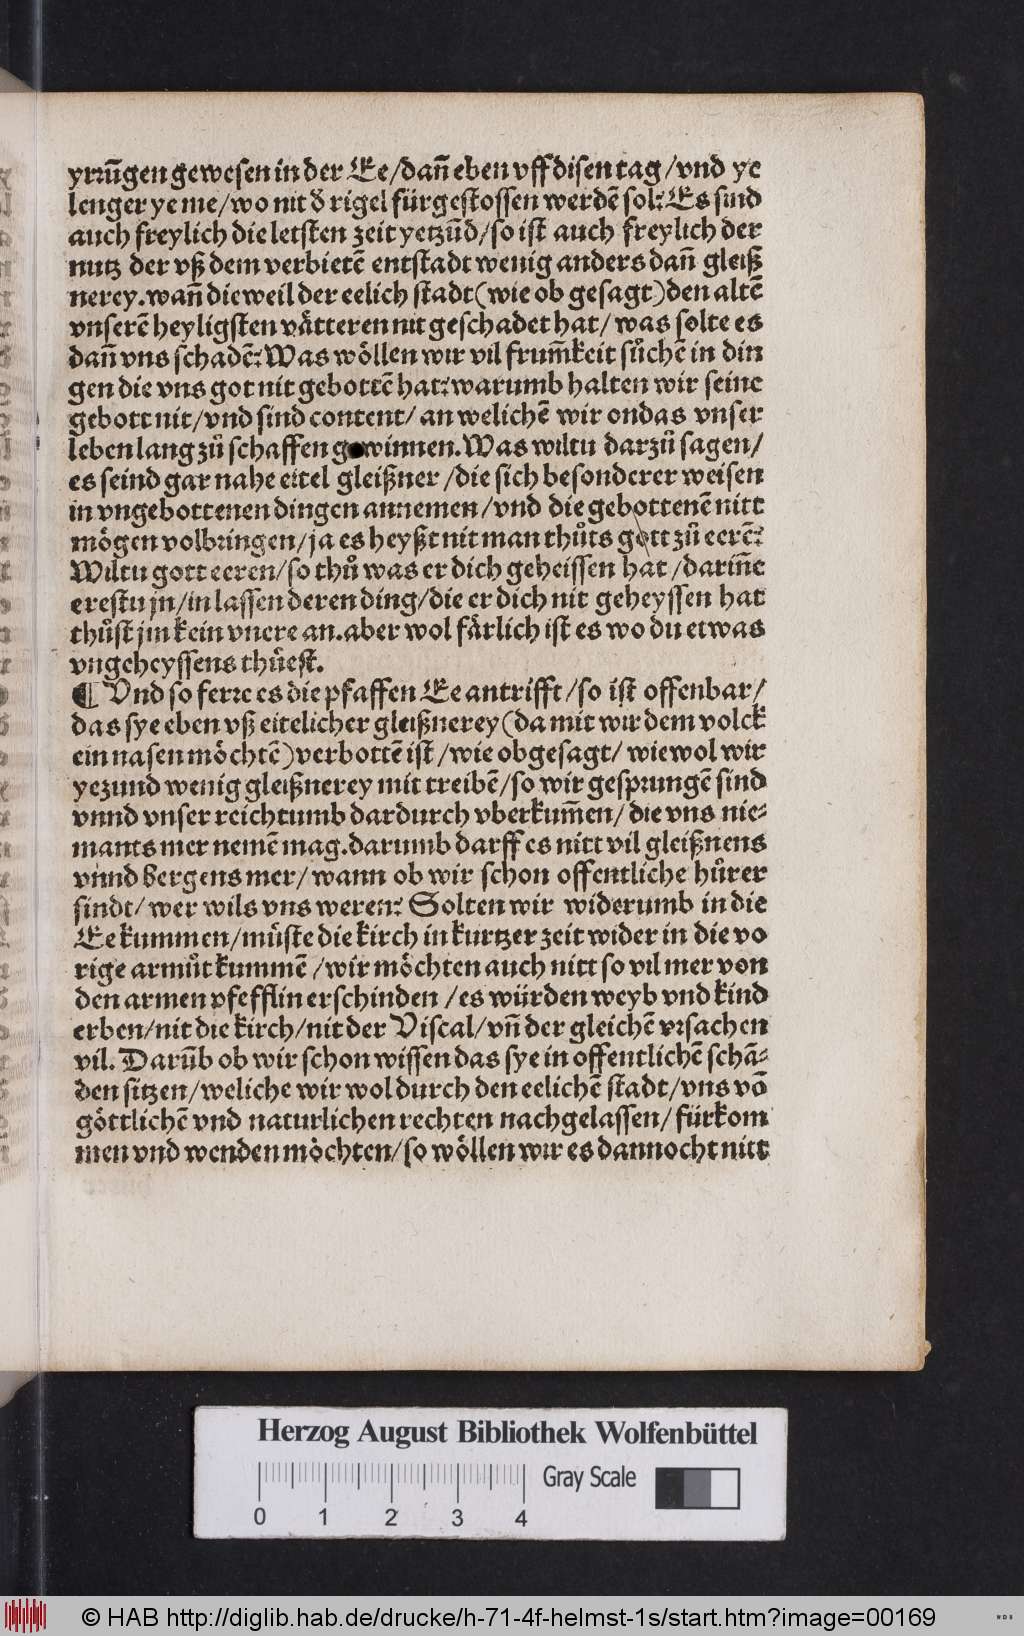 yrrūgen gewesen in der Ee/dañ eben vff disen tag/vnd ye
lenger ye me/wo nit d̕ rigel fürgestossen werdē sol: Es sind
auch freylich die letsten zeit yetzūd/so ist auch freylich der
nutz der vß dem verbietē entstadt wenig anders dañ gleiß
nerey. wañ dieweil der eelich stadt(wie ob gesagt)den altē
vnserē heyligsten vätteren nit geschadet hat/ was solte es
dañ vns schadē: Was wöllen wir vil frum̃keit sůchē in din
gen die vns got nit gebottē hat: warumb halten wir seine
gebott nit/vnd sind content/ an welichē wir ondas vnser
leben lang zů schaffen gewinnen. Was wiltu darzů sagen/
es seind gar nahe eitel gleißner /die sich besonderer weisen
in vngebottenen dingen annemen/vnd die gebottenē nitt
mögen volbringen/ja es heyßt nit man thůts gott zů eerē:
Wiltu gott eeren/so thů was er dich geheissen hat /dariñe
erestu jn/in lassen deren ding/die er dich nit geheyssen hat
thůst jm kein vnere an. aber wol färlich ist es wo du etwas
vngeheyssens thůest.
¶ Vnd so ferre es die pfaffen Ee antrifft/so ist offenbar/
das sye eben vß eitelicher gleißnerey(da mit wir dem volck
ein nasen möchtē)verbottē ist /wie obgesagt/ wiewol wir
yezund wenig gleißnerey mit treibē/so wir gesprungē sind
vnnd vnser reichtumb dardurch vberkum̃en/ die vns nie-
mants mer nemē mag. darumb darff es nitt vil gleißnens
vnnd bergens mer/ wann ob wir schon offentliche hůrer
sindt/ wer wils vns weren: Solten wir widerumb in die
Ee kummen/müste die kirch in kurtzer zeit wider in die vo
rige armůt kummē /wir möchten auch nitt so vil mer von
den armen pfefflin erschinden /es würden weyb vnd kind
erben/nit die kirch/nit der Viscal/vñ der gleichē vrsachen
vil. Darūb ob wir schon wissen das sye in offentlichē schā-
den sitzen/weliche wir wol durch den eelichē stadt/vns vō
göttlichē vnd naturlichen rechten nachgelassen/ fürkom
men vnd wenden möchten/so wöllen wir es dannocht nitt
Herzog August Bibliothek Wolfenbüttel
Gray Scale
0 1 2 3 4
© HAB http://diglib.hab.de/drucke/h-71-4f-helmst-1s/start.htm?image=00169